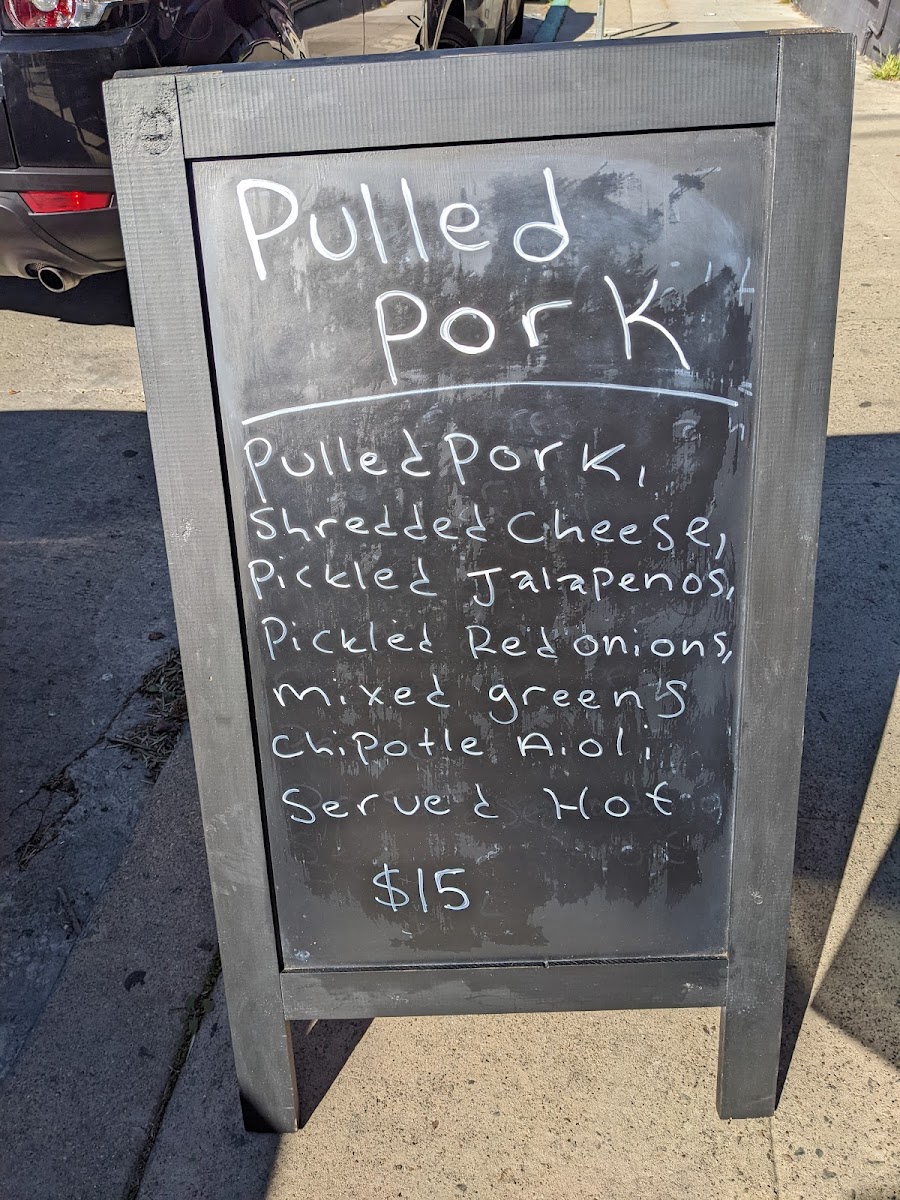 Pulled
Pork
Pulled Pork,
Shredded Cheese,
Pickled Jalapenos,
Pickled Red onions,
mixed green's
Chipotle Aioli
Served Hot
$15